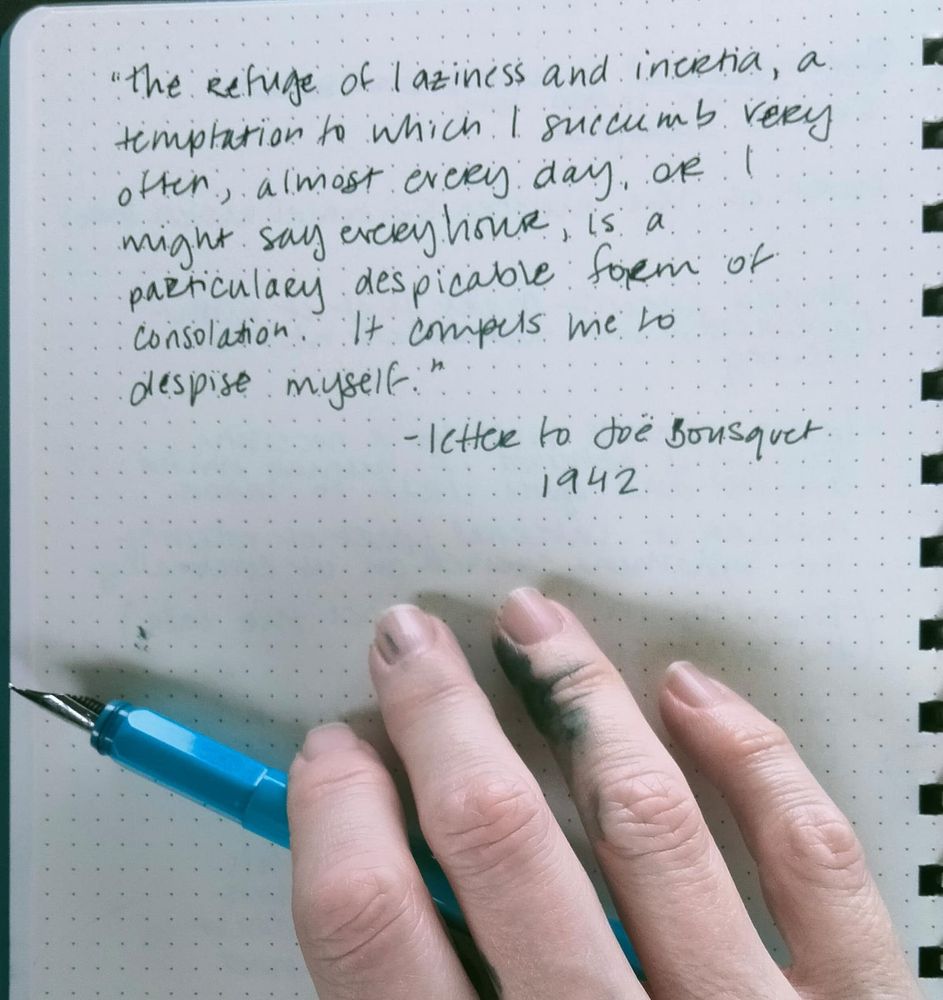 "The refuge of laziness and inertia, a
temptation to which I succumb very
often, almost every day, or I
might say every hour, is a
particulary despicable form of
consolation. It compels me to
despise myself."
-letter to Joë Bousquet
1942